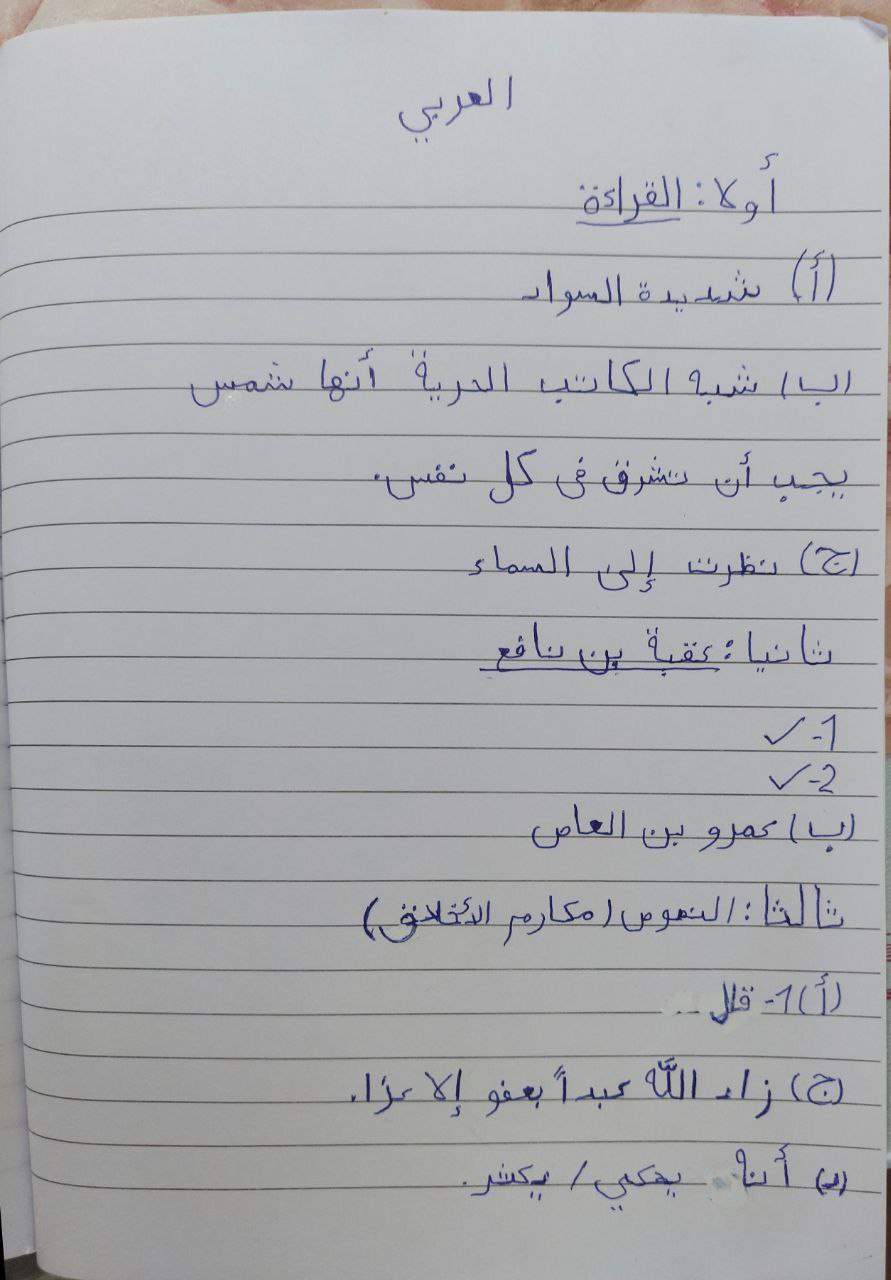 العربي
أولا: القراءة
(أ) شديدة السواد
(ب) شبه الكاتب الحرية أنها شمس
يجب أن تشرق فى كل نفس.
(ج) نظرت إلى السماء
ثانيا: عقبة بن نافع
1- ✓
2- ✓
(ب) عمرو بن العاص
ثالثا: النصوص (مكارم الأخلاق)
(أ) 1- قلل ...
(ج) زاد اللَّه عبداً بعفو إلا عزًا.
(د) أنه يحكي /